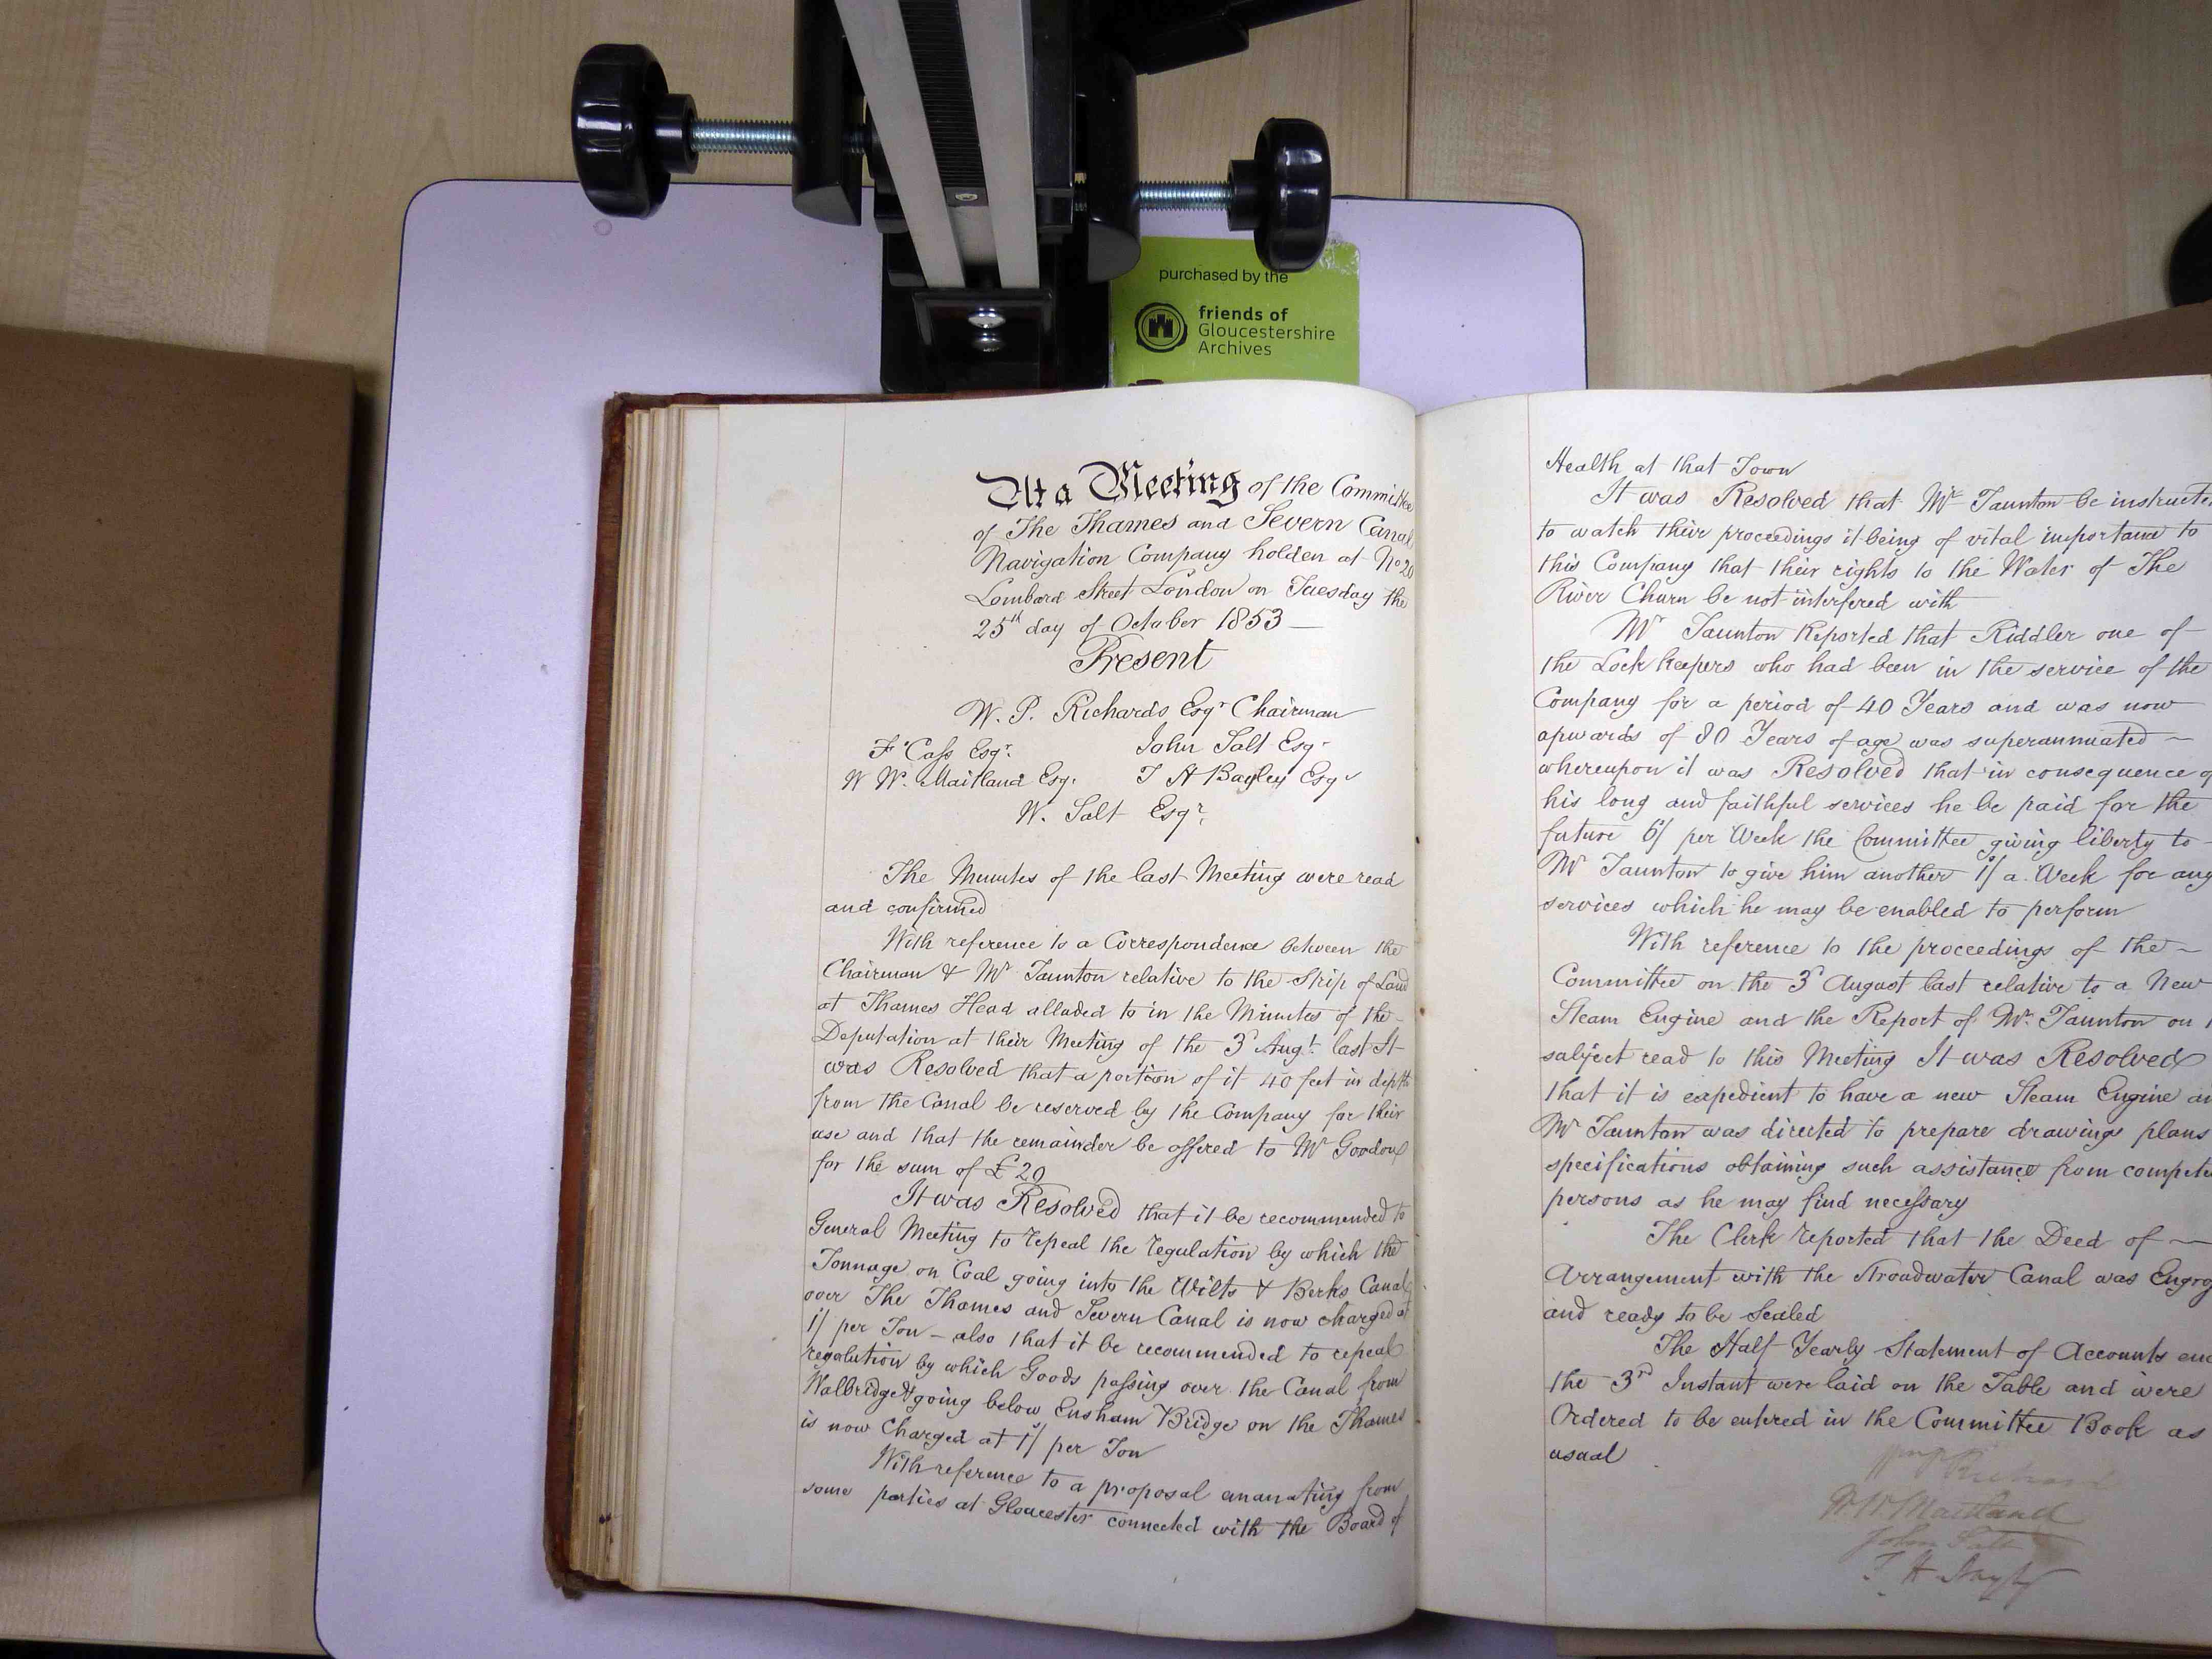 purchased by the
friends of
Gloucestershire
Archives
At a Meeting of the Committee
of The Thames and Severn Canal
Navigation Company holden at No 20
Lombard Street London on Tuesday the
25th day of October 1853
Present
W. P. Richards Esqr Chairman
F Cass Esqr. John Salt Esqr
W W. Maitland Esqr. T H Bayley Esqr
W. Salt Esqr.
The Minutes of the last Meeting were read
and confirmed
With reference to a Correspondence between the
Chairman & Mr Taunton relative to the Strip of Land
at Thames Head alluded to in the Minutes of the
Deputation at their Meeting of the 3d Augt. last It
was Resolved that a portion of it 40 feet in depth
from the Canal be reserved by the Company for their
use and that the remainder be offered to Mr
for the sum of £20
It was Resolved that it be recommended to
General Meeting to repeal the regulation by which the
Tonnage on Coal going into the Wilts & Berks Canal
over The Thames and Severn Canal is now charged at
1/ per Ton – also that it be recommended to repeal
regolution by which Goods passing over the Canal from
Walbridge & going below Ensham Bridge on the Thames
is now Charged at 1/ per Ton
With reference to a proposal emanating from
some parties at Gloucester connected with the Board of
Health at that Town
It was Resolved that Mr Taunton be instructe
to watch their proceedings it being of vital importance to
this Company that their rights to the Water of The
River Churn be not interfered with
Mr Taunton Reported that Riddler one of
the Lock keepers who had been in the service of the
Company for a period of 40 Years and was now
upwards of 80 Years of age was superannuated
whereupon it was Resolved that in consequence of
his long and faithful services he be paid for the
future 6/ per Week the Committee giving liberty to
Mr Taunton to give him another 1/ a Week for any
services which he may be enabled to perform
With reference to the proceedings of the
Committee on the 3d August last relative to a New
Steam Engine and the Report of Mr. Taunton on
subject read to this Meeting It was Resolved
that it is expedient to have a new Steam Engine an
Mr Taunton was directed to prepare drawings plans
specifications obtaining such assistance from compete
persons as he may find necessary
The Clerk reported that the Deed of
Arrangement with the Stroudwater Canal was Engro
and ready to be Sealed
The Half Yearly Statement of Accounts end
the 3rd Instant were laid on the Table and were
Ordered to be entered in the Committee Book as
usual
W. W. Maitland
John Salt
T. H. Bayley